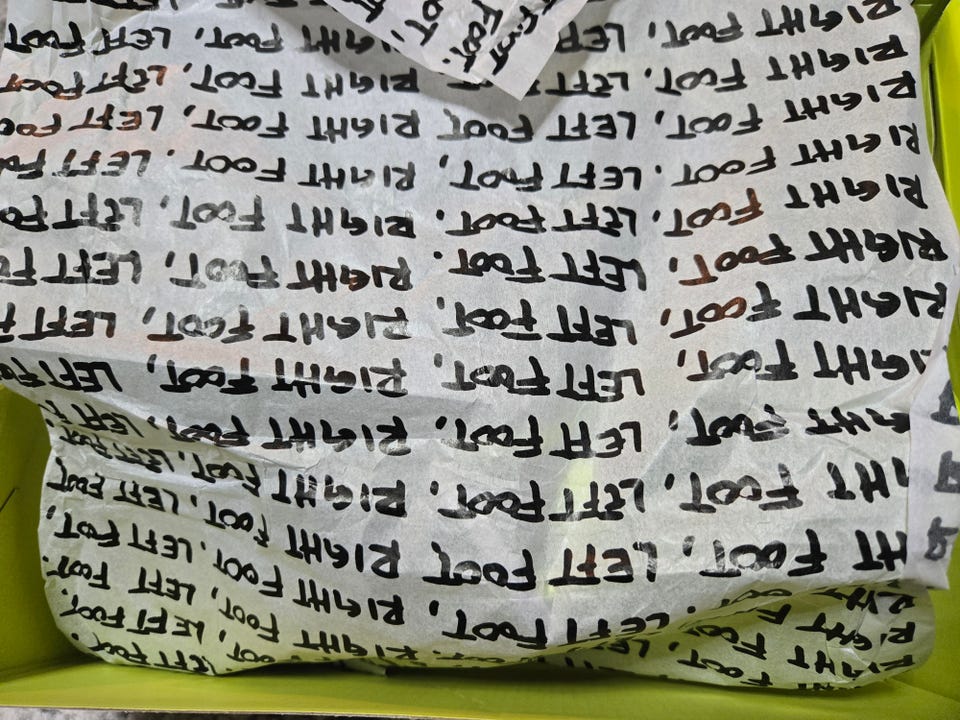 RIGHT FOOT, LEFT FOOT.
RIGHT FOOT, LEFT FOOT.
LEFT FOOT, RIGHT FOOT, LEFT FOOT.
FOOT, LEFT FOOT, RIGHT FOOT, LEFT FOOT,
HT FOOT, LEFT FOOT, RIGHT FOOT, LEFT FOOT
GHT FOOT, LEFT FOOT, RIGHT FOOT, LEFT FOOT.
IGHT FOOT, LEFT FOOT, RIGHT FOOT, LEFT FOO
RIGHT FOOT, LEFT FOOT, RIGHT FOOT, LEFT F
RIGHT FOOT, LEFT FOOT. RIGHT FOOT, LEFT FO
RIGHT FOOT, LEFT FOOT. RIGHT FOOT, LEFT FO
RIGHT FOOT. LEFT FOOT, RIGHT FOOT. LEFT FOO
RIGHT FOOT, LEFT FOOT, RIGHT FOOT, LEFT FOO
RIGHT FOOT, LEFT RIGHT FOOT, LEFT FOOT
RIGHT FOOT, LEF RIGHT FOOT, LEFT FOOT.
FOOT.
FOOT,